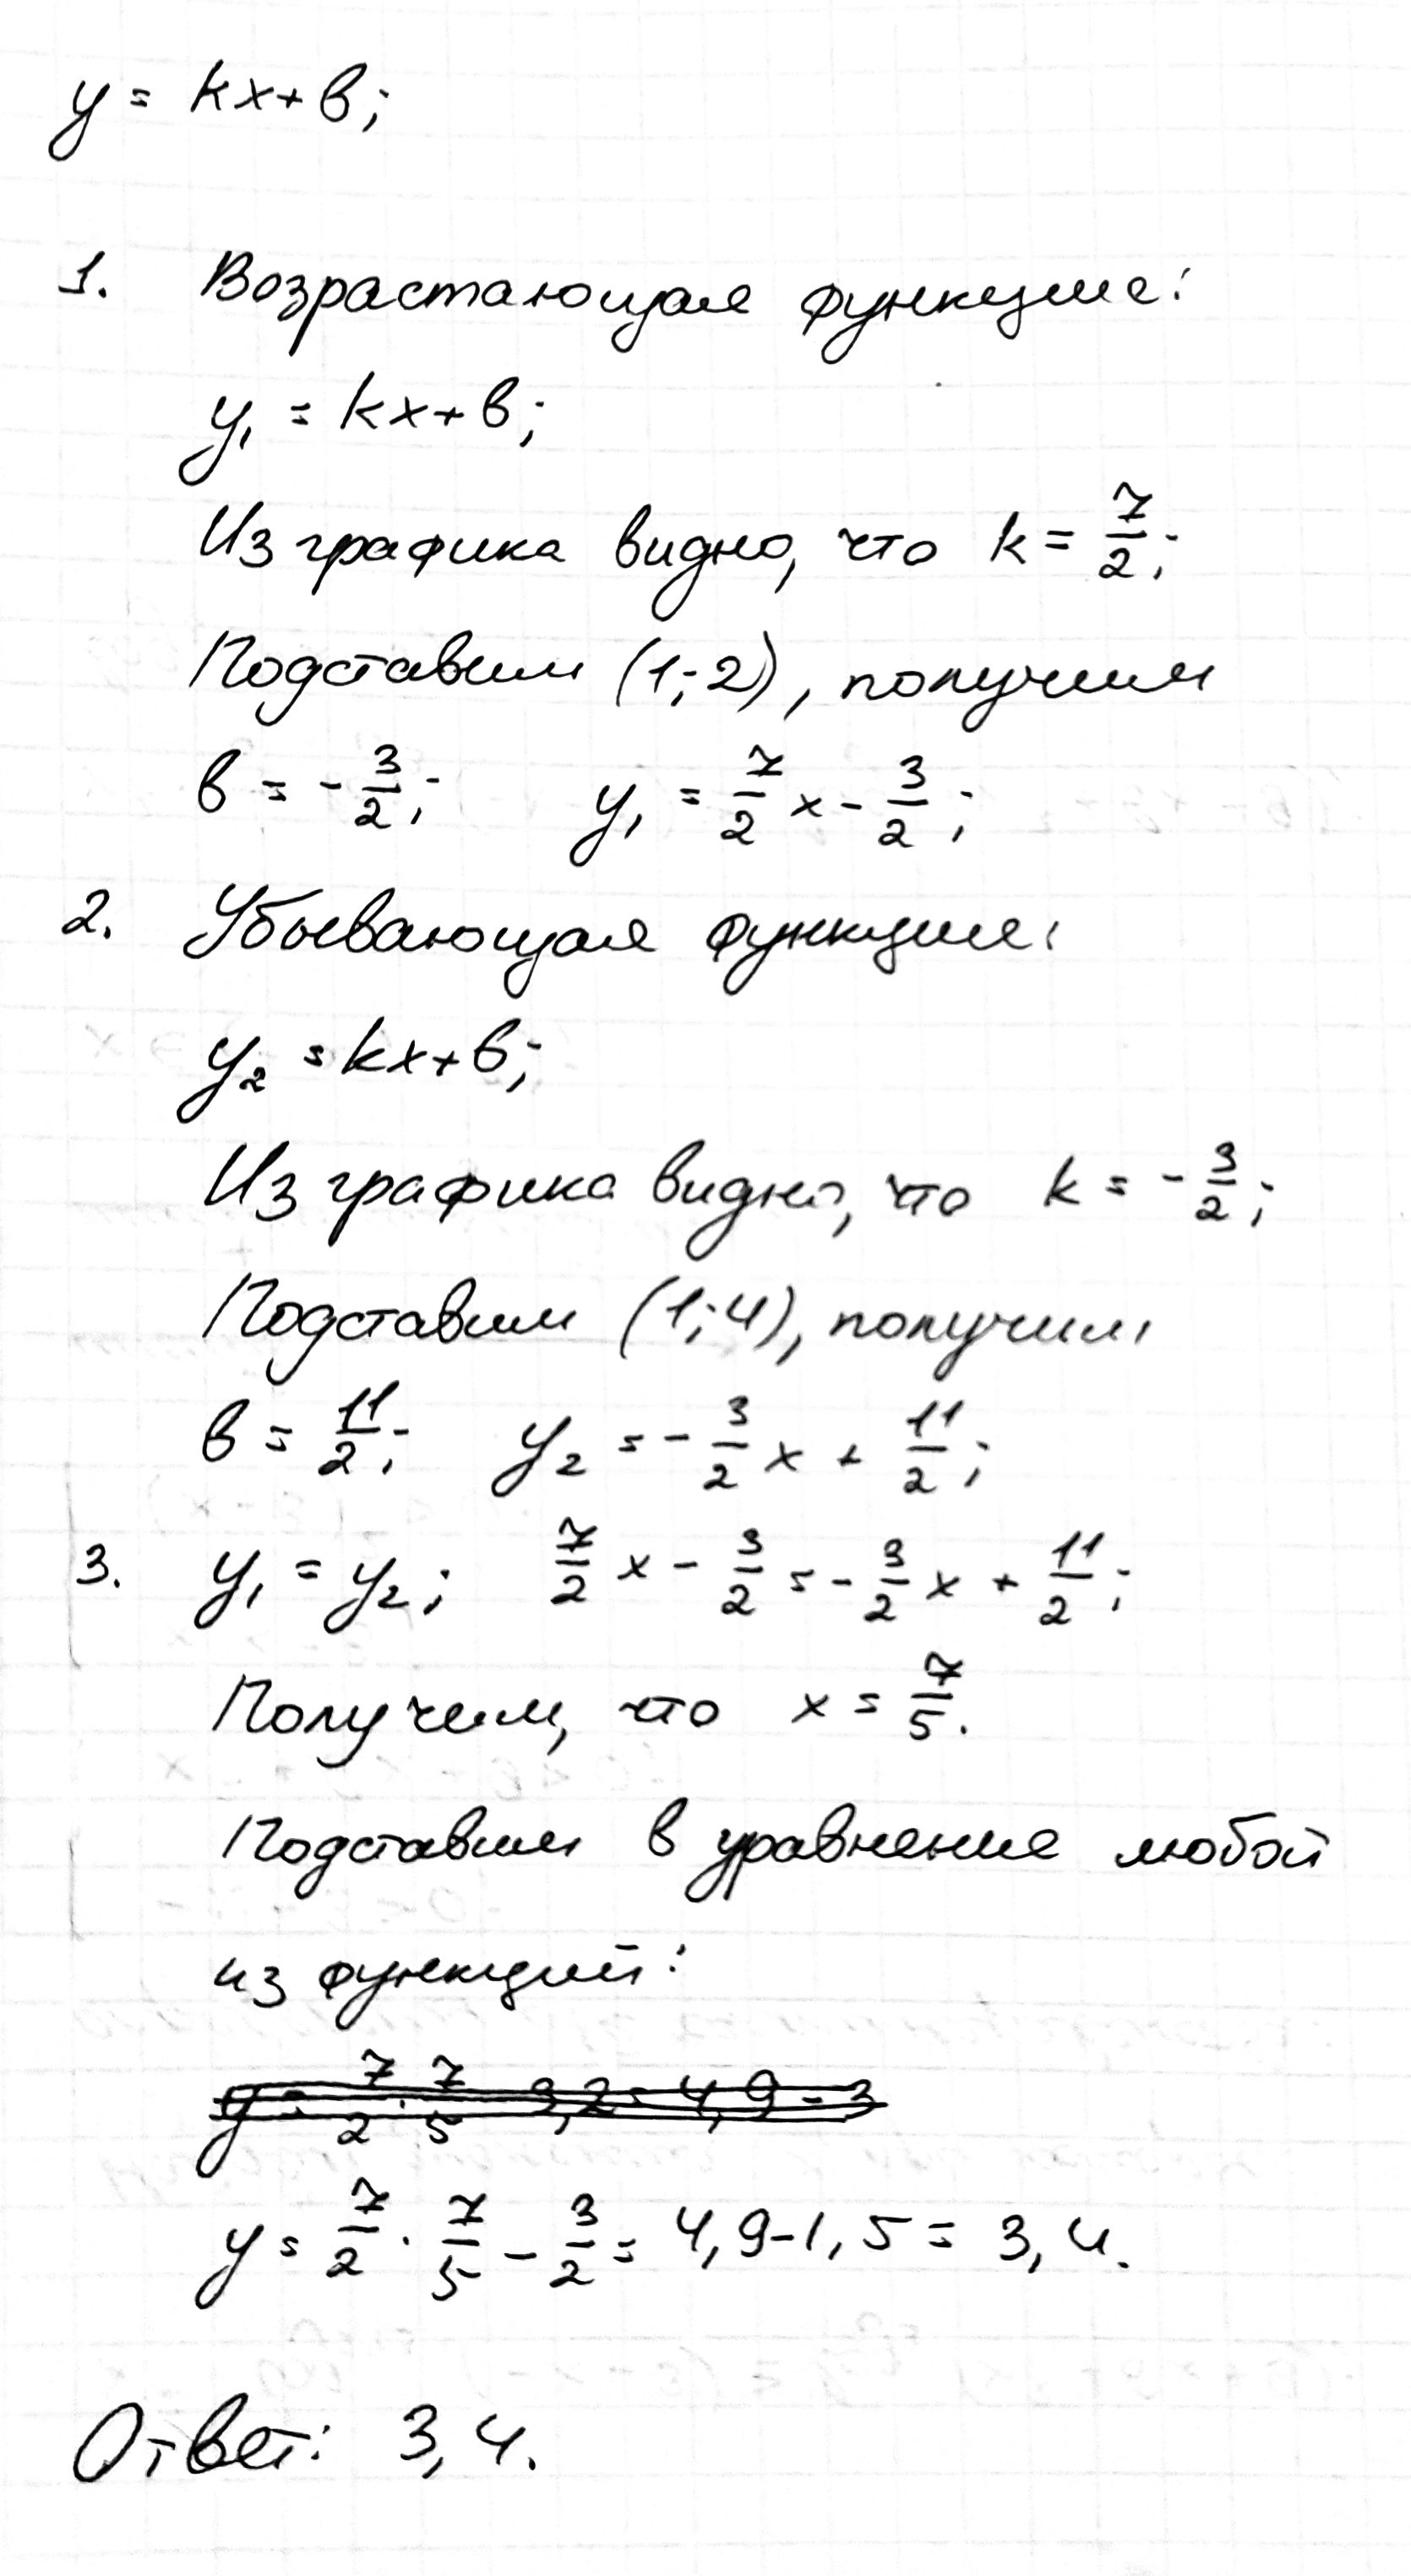 y = kx + b;
1. Возрастающая функция:
y₁ = kx + b;
Из графика видно, что k = 7/2;
Подставим (1;2), получим
b = -3/2; y₁ = 7/2 x - 3/2;
2. Убывающая функция:
y₂ = kx + b;
Из графика видно, что k = -3/2;
Подставим (1;4), получим
b = 11/2; y₂ = -3/2 x + 11/2;
3. y₁ = y₂; 7/2 x - 3/2 = -3/2 x + 11/2;
Получим, что x = 7/5.
Подставим в уравнение любой
из функций:
y = 7/2 · 7/5 - 3/2 = 4,9 - 1,5 = 3,4.
Ответ: 3,4.